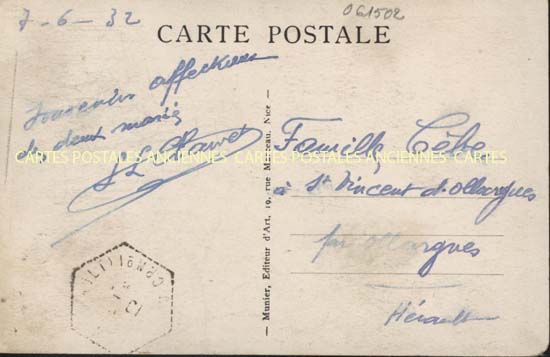 7-6-32
061502
CARTE POSTALE
Souvenirs affectueux
de deux mariés
Famille Cèbe
CARTES POSTALES ANCIENNES CARTES POSTALES ANCIENNES CARTES
à St Vincent d'Olargues
par Olargues
Hérault
— Munier, Editeur d'Art, 19, rue Marceau, Nice —